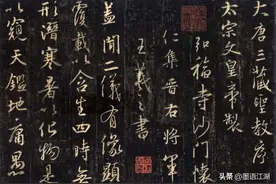 大唐三藏聖教序
太宗文皇帝製
弘福寺沙門懷
仁集晉右將軍
王羲之書
蓋聞二儀有像顯
覆載以含生四時無
形潛寒暑以化物是
以窺天鑑地庸愚
头条 @墨语江湖